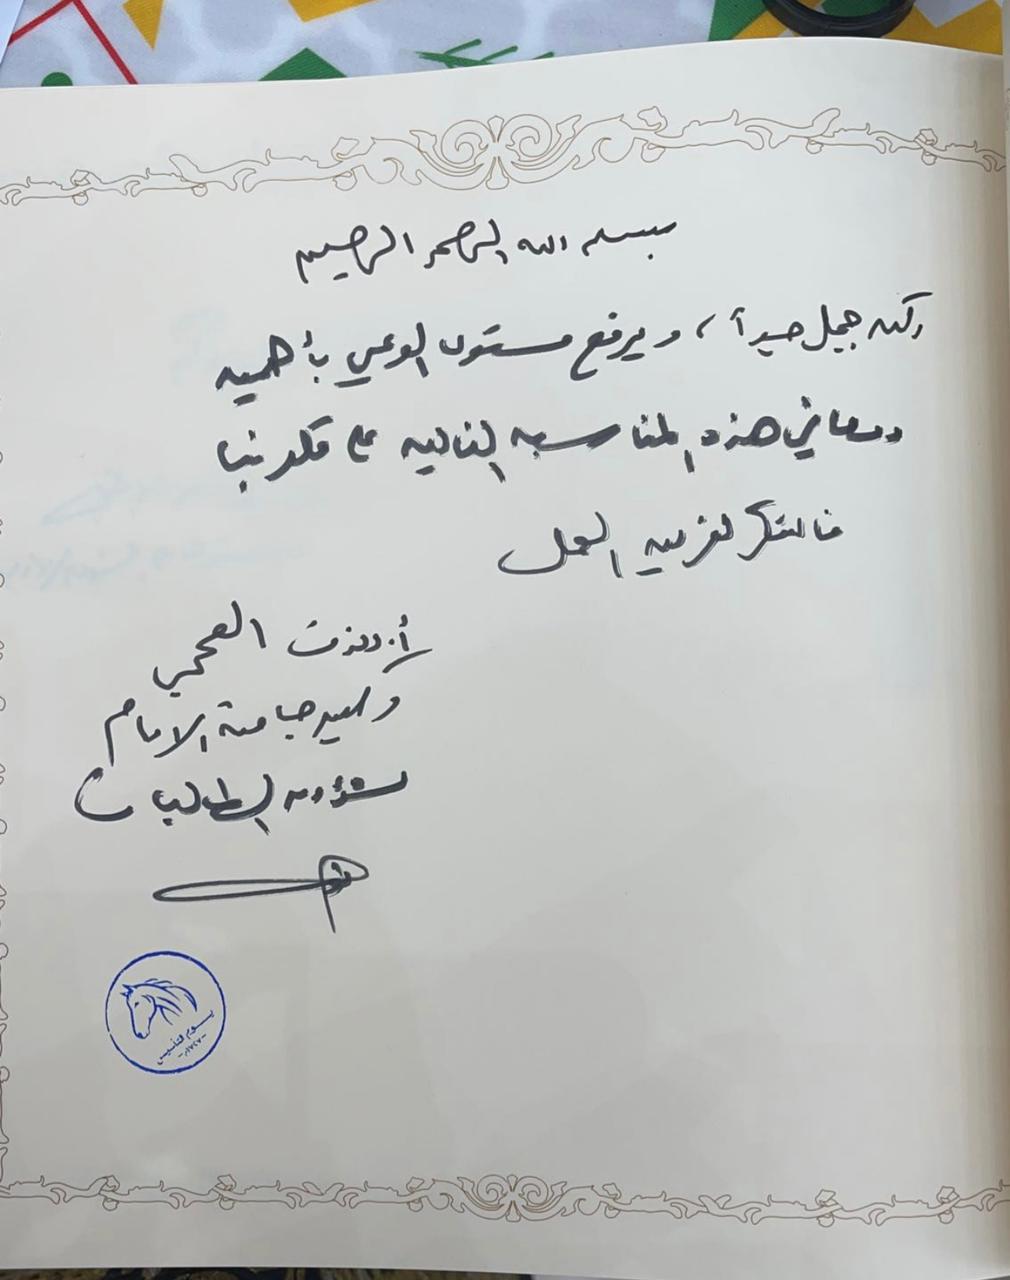 بسم الله الرحمن الرحيم
ركن جميل جداً ، ويرفع مستوى الوعي بأهمية
ومعاني هذه المناسبة الغالية على قلوبنا
فالشكر لفريق العمل
أ. د. العجمي
وكيلة جامعة الإمام
لشؤون الطالبات
يوم التأسيس